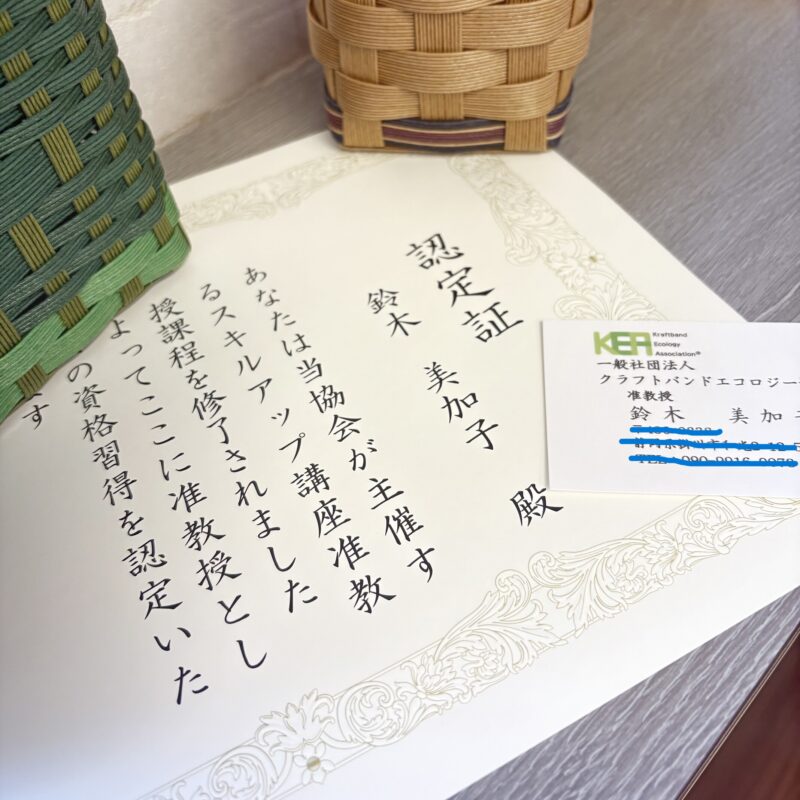 認定証
鈴木 美加子 殿
あなたは当協会が主催す
るスキルアップ講座准教
授課程を修了されました
よってここに准教授とし
の資格習得を認定いた
す
KEA
Kraftband
Ecology
Association®
一般社団法人
クラフトバンドエコロジー
准教授
鈴木 美加子